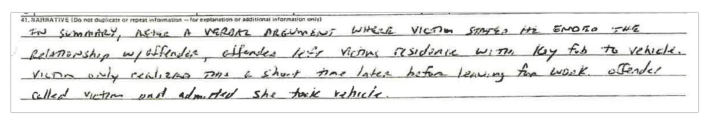 41. NARRATIVE (Do not duplicate or repeat information -- for explanation or additional information only)
IN SUMMARY, AFTER A VERBAL ARGUMENT WHERE VICTIM STATES HE ENDED THE
Relationship w/offender, offender left victims residence with key fob to vehicle.
Victim only realized this a short time later before leaving for work. offender
called victim and admitted she took vehicle.